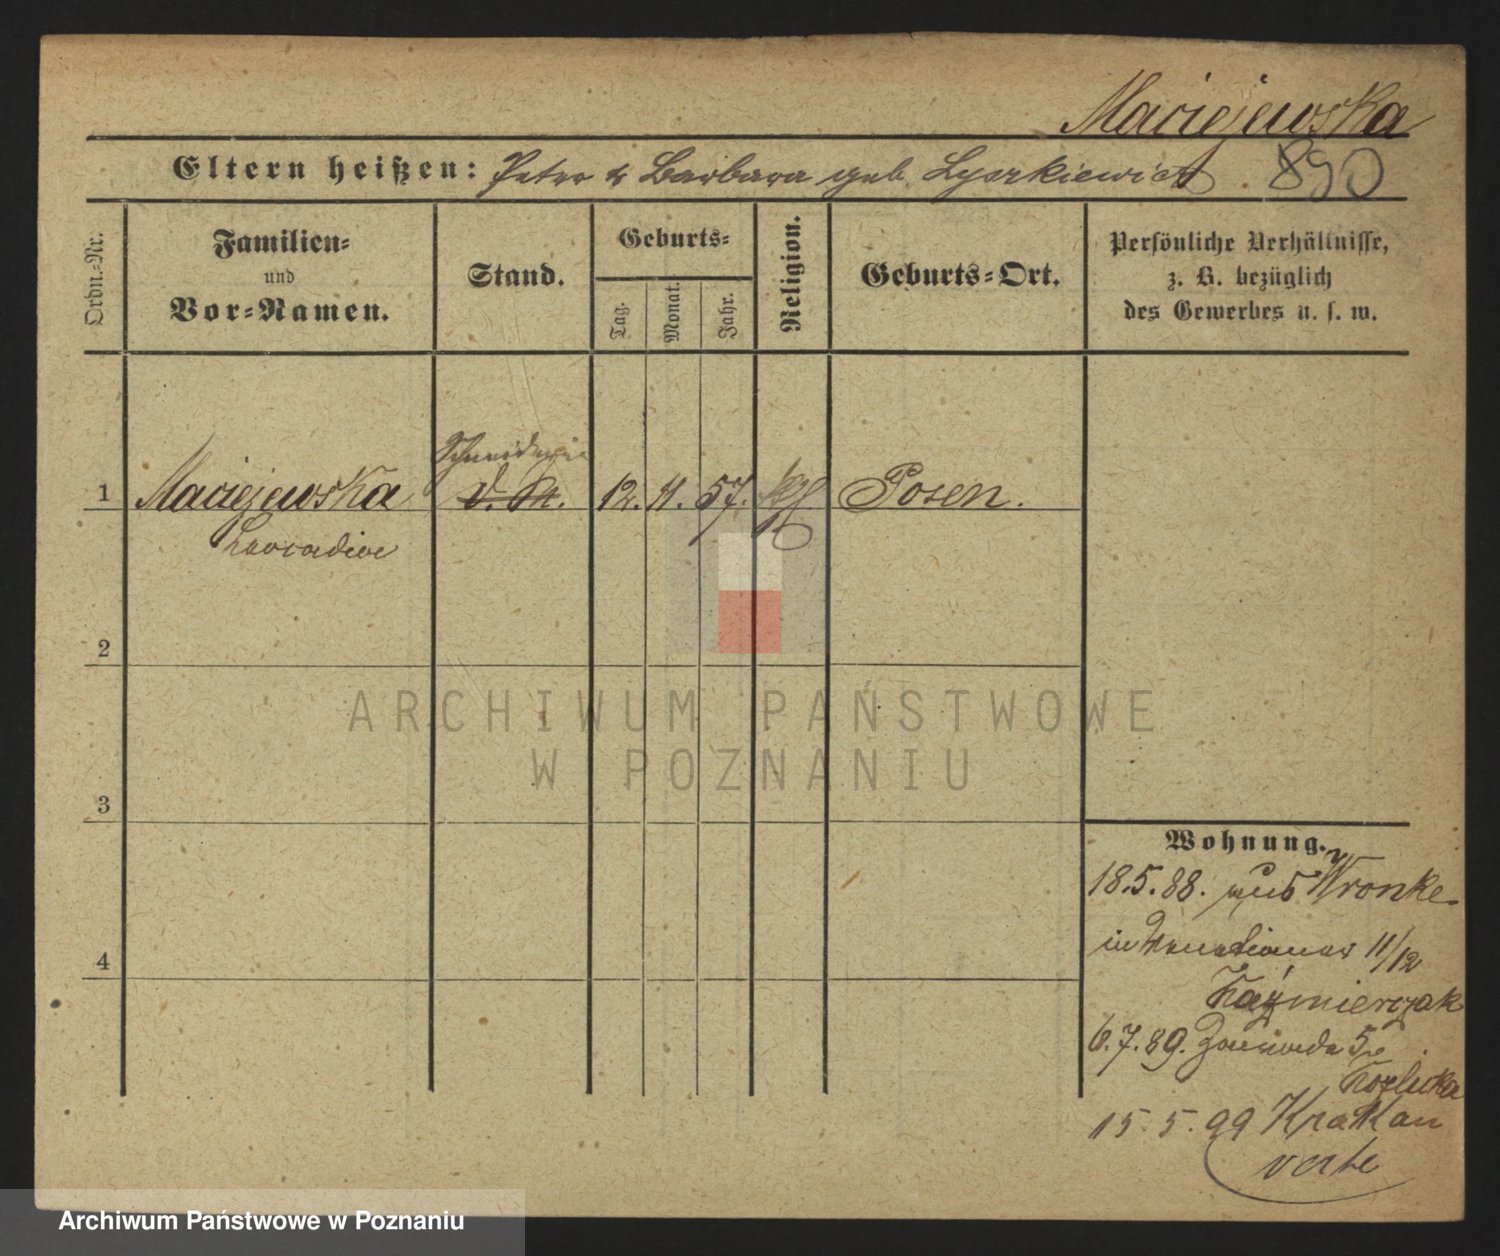 Maciejewska
Eltern heißen: Peter & Barbara geb. Lyszkiewicz 890
Ordn.-Nr.
Familien-
und
Vor-Namen.
Stand.
Geburts-
Tag.
Monat.
Jahr.
Religion.
Geburts-Ort.
Persönliche Verhältnisse,
z. B. bezüglich
des Gewerbes u. s. w.
Schneiderin
1 Maciejewska d. M. 12. 11. 57. kth Posen.
Leocadia
2
3
4
Wohnung.
18.5.88. aus Wronke
in Venetianer 11/12
Kaźmierczak
6.7.89. Zawade 5
Kozlicka
15.5.99 Krakau
verte
ARCHIWUM PAŃSTWOWE
W POZNANIU
Archiwum Państwowe w Poznaniu